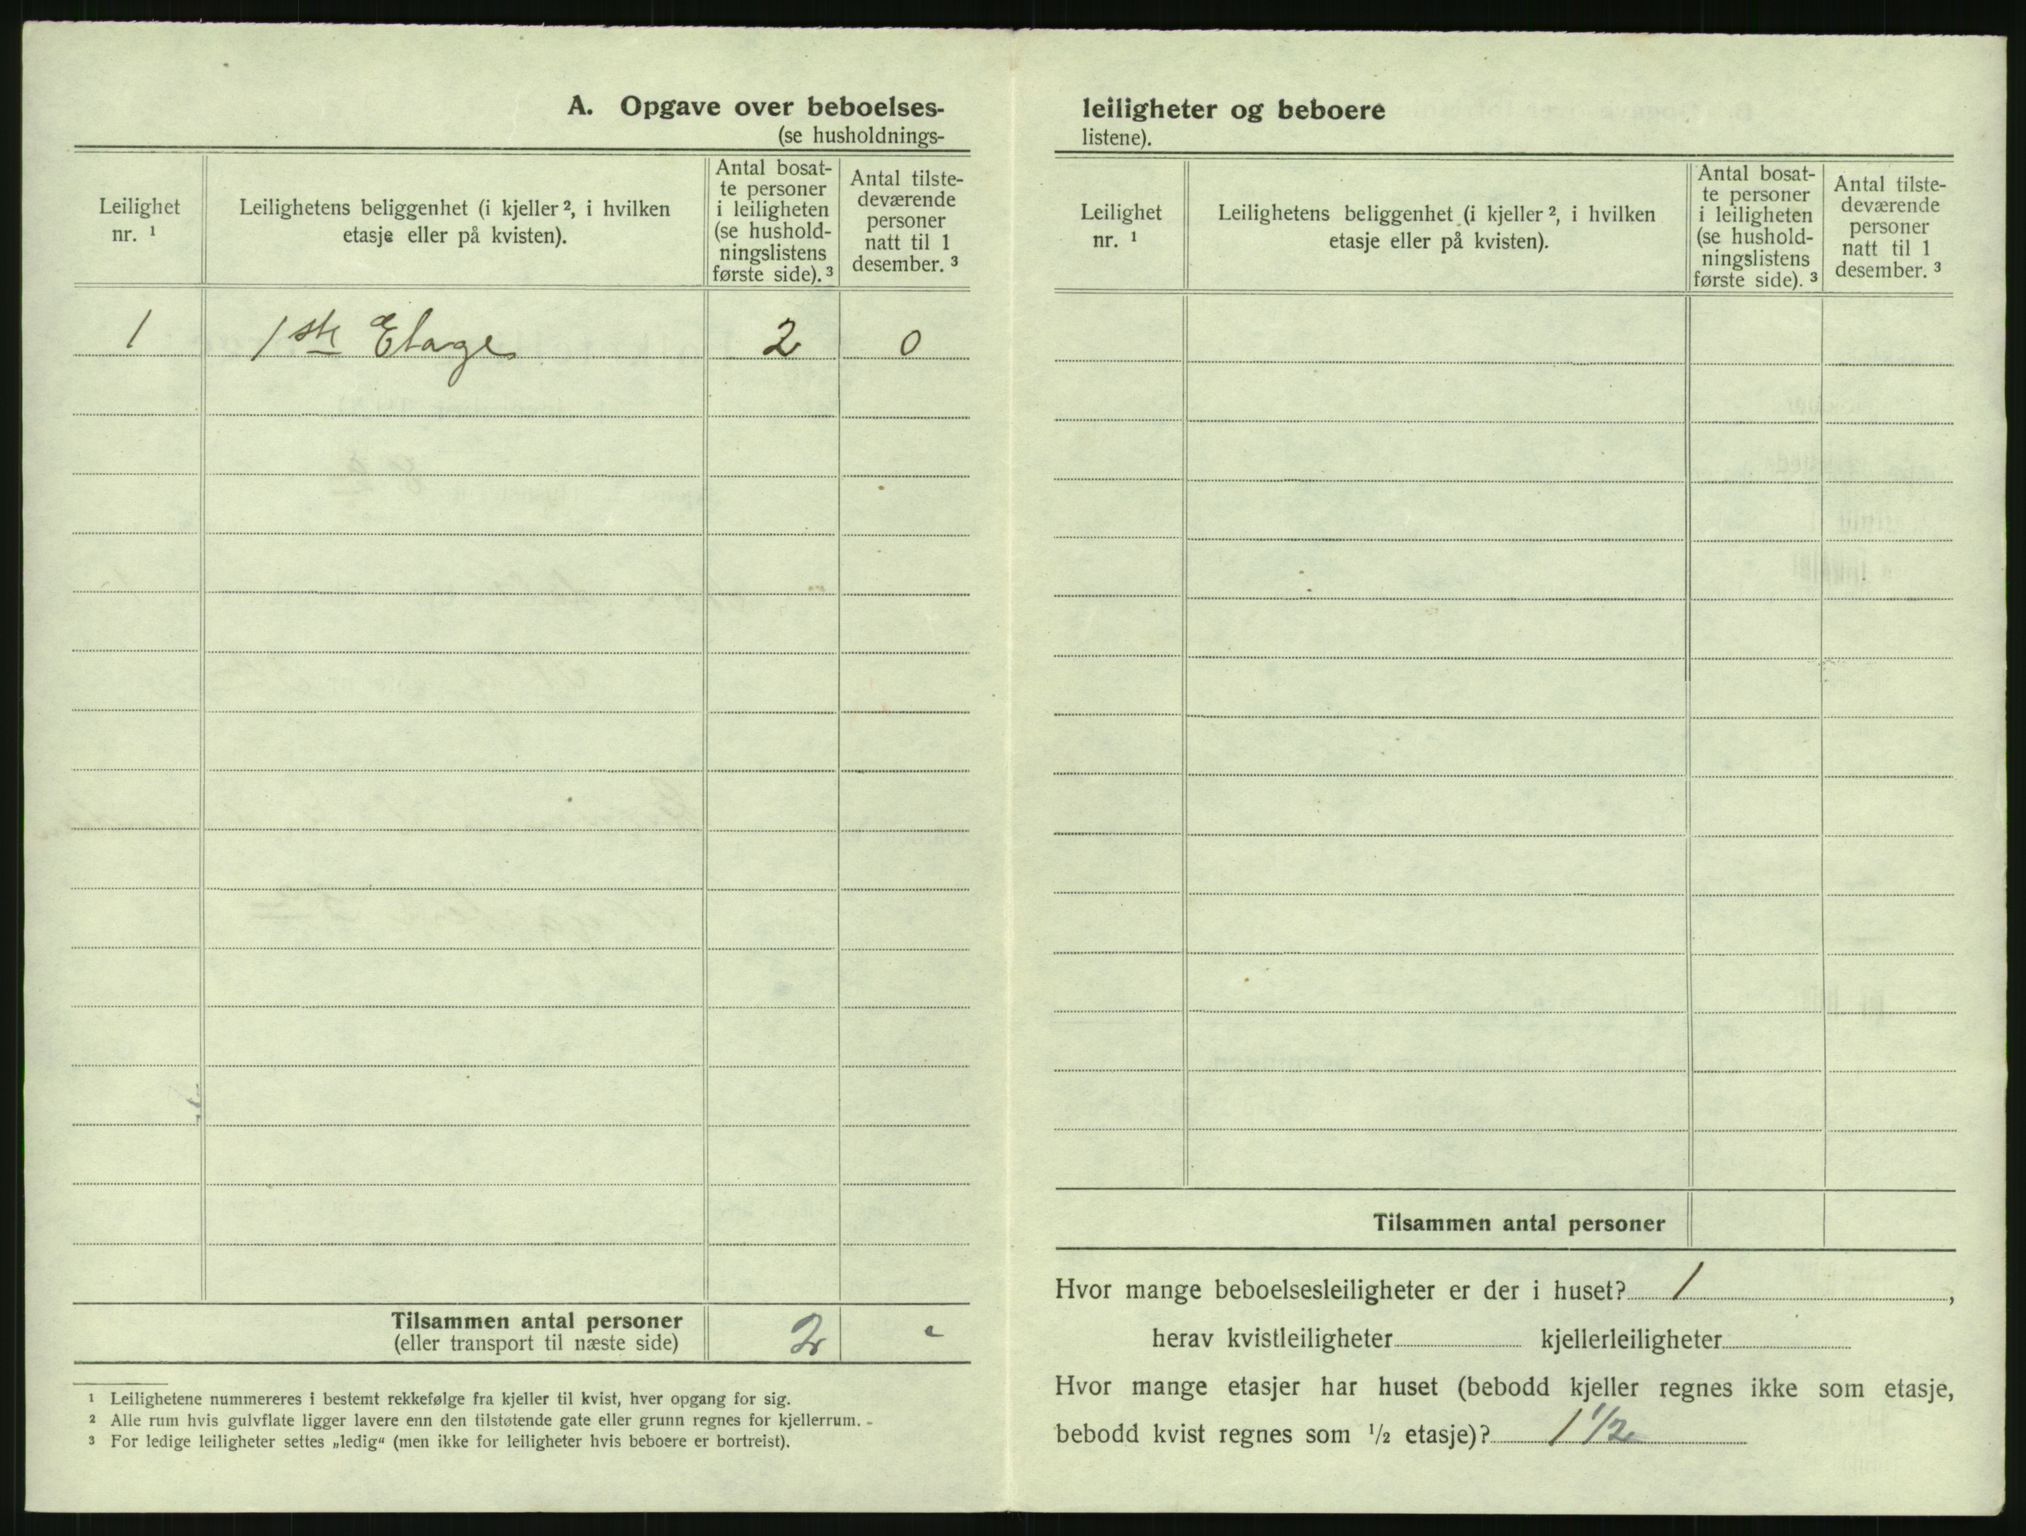 A. Opgave over beboelses-
(se husholdnings-
Leilighet
nr. ¹
Leilighetens beliggenhet (i kjeller ², i hvilken
etasje eller på kvisten).
Antal bosat-
te personer
i leiligheten
(se hushold-
ningslistens
første side). ³
Antal tilste-
deværende
personer
natt til 1
desember. ³
1 1ste Etage 2 0
Tilsammen antal personer
(eller transport til næste side)
2
¹ Leilighetene nummereres i bestemt rekkefølge fra kjeller til kvist, hver opgang for sig.
² Alle rum hvis gulvflate ligger lavere enn den tilstøtende gate eller grunn regnes for kjellerrum.
³ For ledige leiligheter settes „ledig“ (men ikke for leiligheter hvis beboere er bortreist).
leiligheter og beboere
listene).
Leilighet
nr. ¹
Leilighetens beliggenhet (i kjeller ², i hvilken
etasje eller på kvisten).
Antal bosat-
te personer
i leiligheten
(se hushold-
ningslistens
første side). ³
Antal tilste-
deværende
personer
natt til 1
desember. ³
Tilsammen antal personer
Hvor mange beboelsesleiligheter er der i huset? 1,
herav kvistleiligheter kjellerleiligheter
Hvor mange etasjer har huset (bebodd kjeller regnes ikke som etasje,
bebodd kvist regnes som ½ etasje)? 1 ½